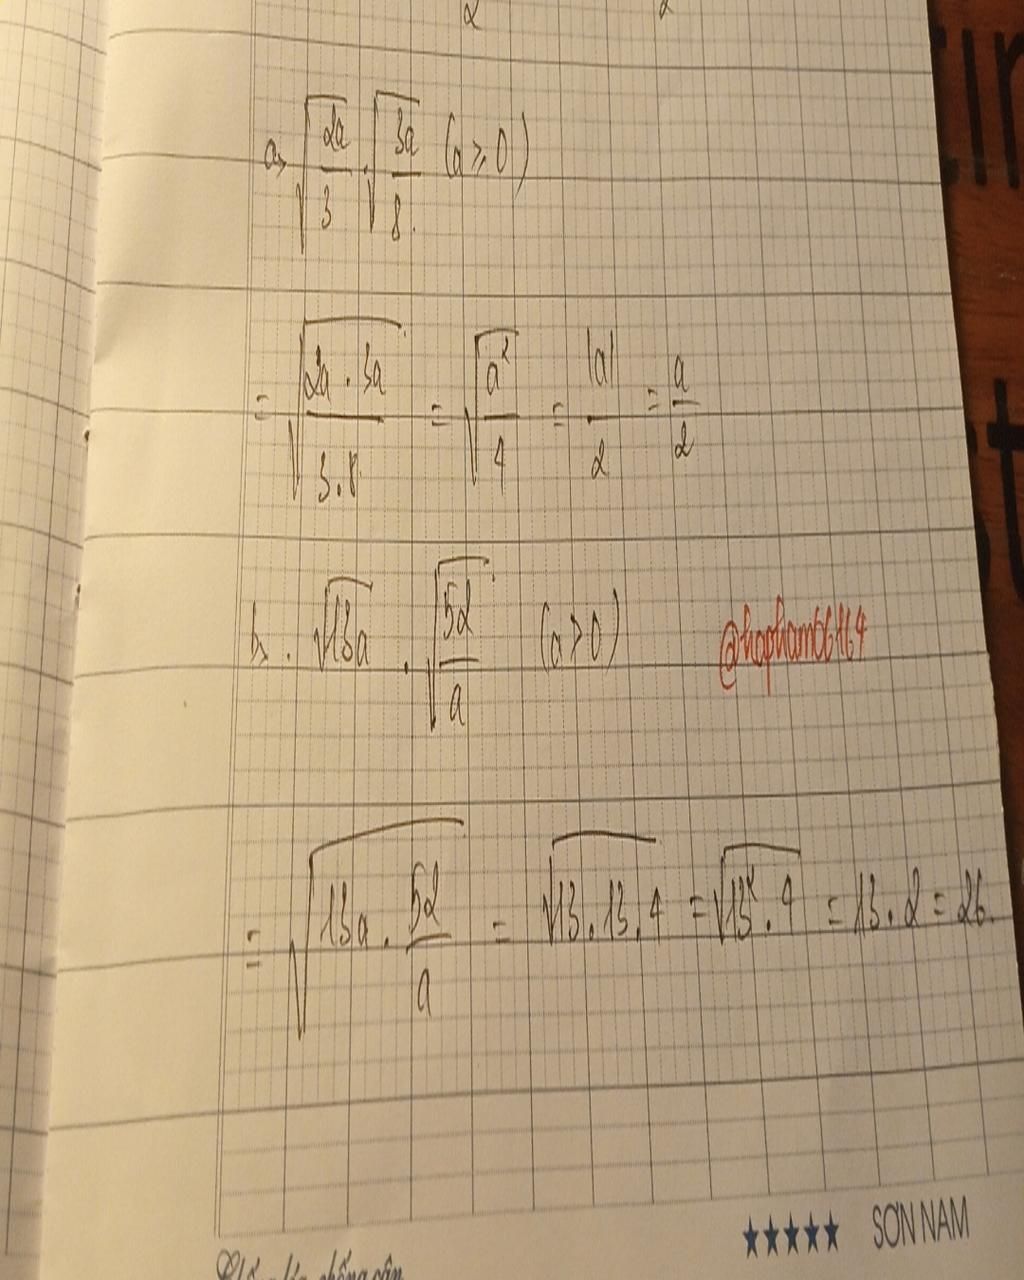 2 2
a, √(2a/3) . √(3a/8) (a ≥ 0)
= √(2a . 3a / 3.8) = √(a²/4) = |a|/2 = a/2
b, . √13a . √(52/a) (a > 0)
@hopham06164
= √(13a . 52/a) = √13.13.4 = √13².4 = 13.2 = 26.
★★★★★ SƠN NAM
chống